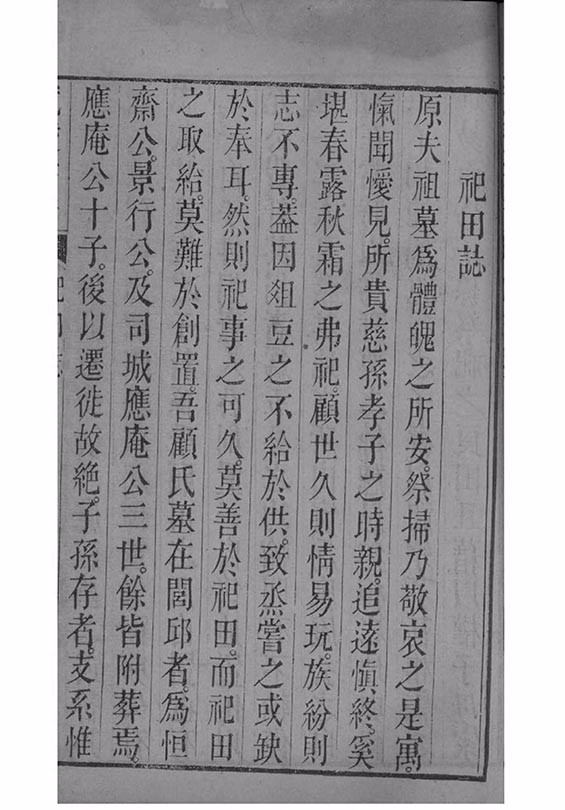 祀田誌
原夫祖墓爲體魄之所安。祭掃乃敬哀之是寓
愾聞慢見。所貴慈孫孝子之時親。追遠愼終。奚
堪春露秋霜之弗祀。顧世久則情易玩。族紛則
志不專。葢因俎豆之不給於供。致烝嘗之或缺
於奉耳。然則祀事之可久。莫善於祀田。而祀田
之取給。莫難於創置。吾顧氏墓在閶邱者。爲恒
齋公。景行公。及司城應庵公三世。餘皆附葬焉。
應庵公十子。後以遷徙故絶。子孫存者。支系惟
祀田誌